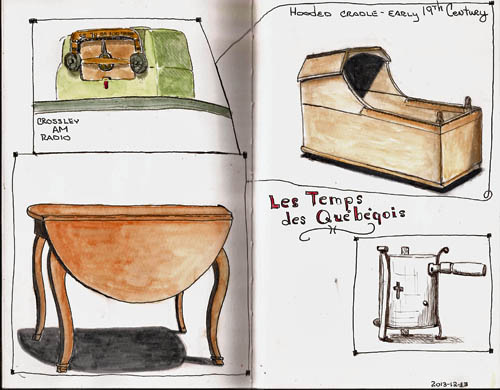 CROSSLEY
AM
RADIO
HOODED CRADLE - EARLY 19TH CENTURY
Les Temps
des Québéqois
2013-12-13